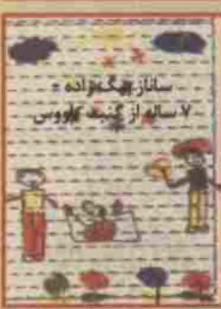 ساناز بیگ‌زاده =
۷ ساله از گنبد کاووس